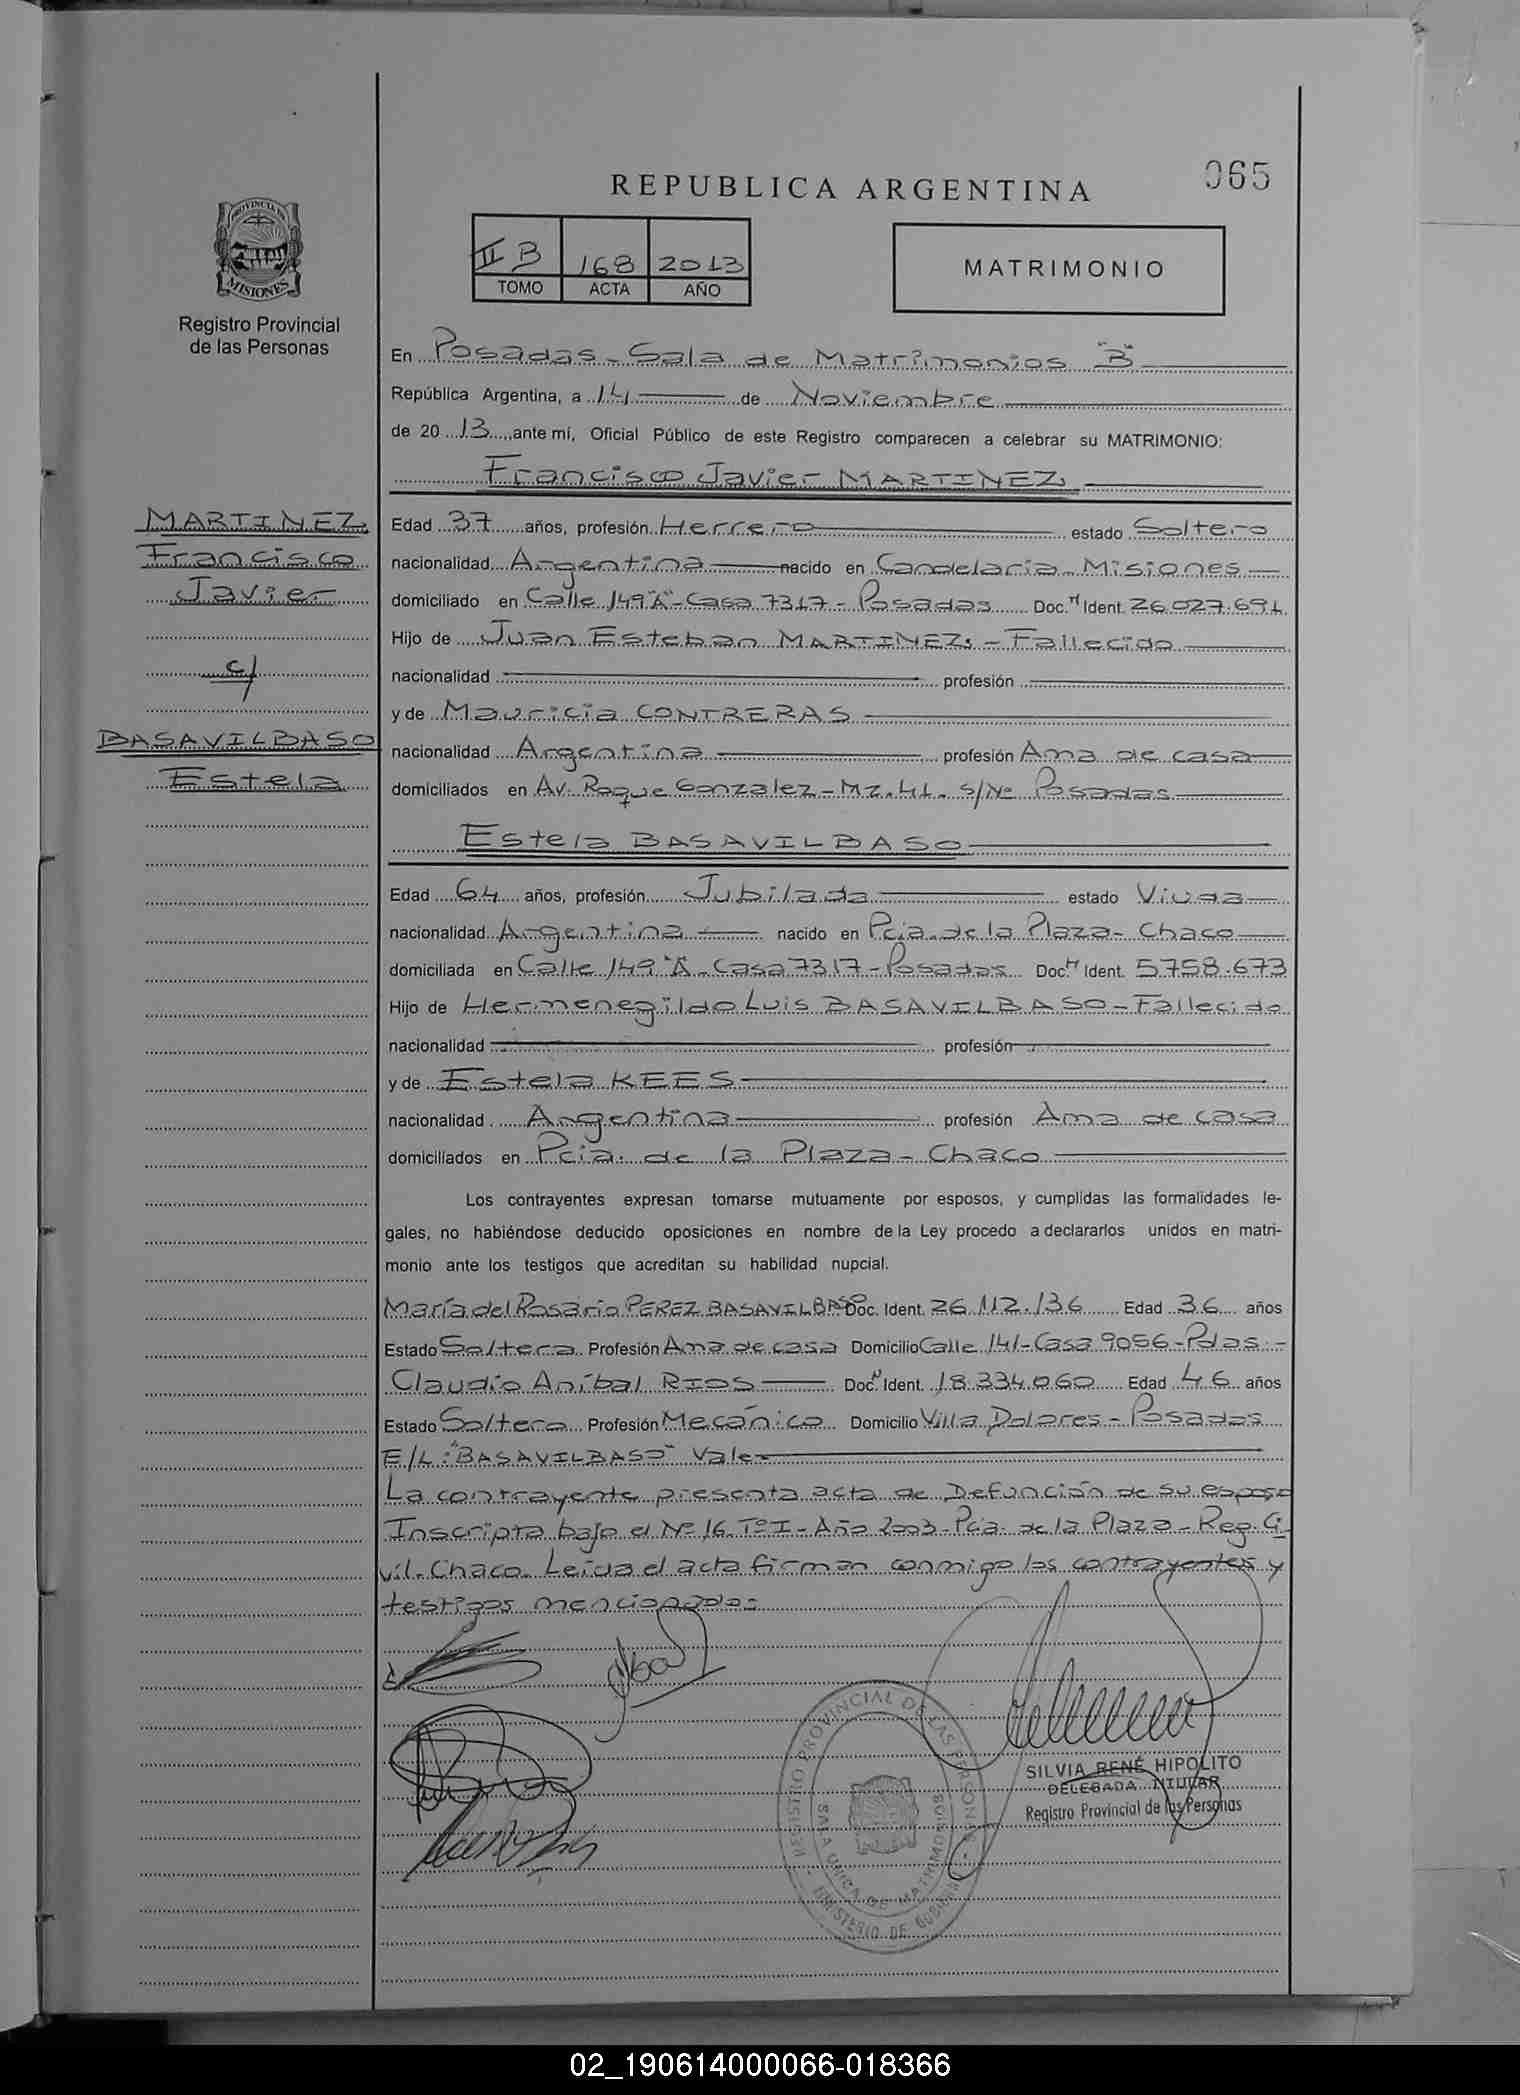 065
REPUBLICA ARGENTINA
PROVINCIA DE
MISIONES
Registro Provincial
de las Personas
II B 168 2013
TOMO ACTA AÑO
MATRIMONIO
En Posadas - Sala de Matrimonios "B"
República Argentina, a 14 de Noviembre
de 20 13 ante mí, Oficial Público de este Registro comparecen a celebrar su MATRIMONIO:
Francisco Javier MARTINEZ
MARTINEZ
Francisco
Javier
c/
BASAVILBASO
Estela
Edad 37 años, profesión Herrero estado Soltero
nacionalidad Argentina nacido en Candelaria - Misiones
domiciliado en Calle 149 "A" - Casa 7317 - Posadas Doc. N Ident. 26.027.691
Hijo de Juan Esteban MARTINEZ - Fallecido
nacionalidad profesión
y de Mauricia CONTRERAS
nacionalidad Argentina profesión Ama de casa
domiciliados en Av. Roque Gonzalez - Mz. 41 - s/Nº Posadas
Estela BASAVILBASO
Edad 64 años, profesión Jubilada estado Viuda
nacionalidad Argentina nacido en Pcia. de la Plaza - Chaco
domiciliada en Calle 149 "A" - Casa 7317 - Posadas Doc. N Ident. 5758.673
Hijo de Hermenegildo Luis BASAVILBASO - Fallecido
nacionalidad profesión
y de Estela KEES
nacionalidad Argentina profesión Ama de casa
domiciliados en Pcia. de la Plaza - Chaco
Los contrayentes expresan tomarse mutuamente por esposos, y cumplidas las formalidades le-
gales, no habiéndose deducido oposiciones en nombre de la Ley procedo a declararlos unidos en matri-
monio ante los testigos que acreditan su habilidad nupcial.
María del Rosario PEREZ BASAVILBASO Doc. Ident. 26.112.136 Edad 36 años
Estado Soltera Profesión Ama de casa Domicilio Calle 141 - Casa 9056 - Pdas. -
Claudio Aníbal RIOS Doc. N Ident. 18.334.060 Edad 46 años
Estado Soltero Profesión Mecánico Domicilio Villa Dolores - Posadas
E/L: "BASAVILBASO" Vale
La contrayente presenta acta de Defunción de su esposo
Inscripta bajo el Nº 16. Tº I - Año 2003 - Pcia. de la Plaza - Reg. Ci
vil. Chaco. Leída el acta firman conmigo los contrayentes y
testigos mencionados
REGISTRO PROVINCIAL DE LAS PERSONAS
MINISTERIO DE GOBIERNO
SALA UNICA DE MATRIMONIOS
SILVIA RENÉ HIPOLITO
DELEGADA TITULAR
Registro Provincial de las Personas
02_190614000066-018366